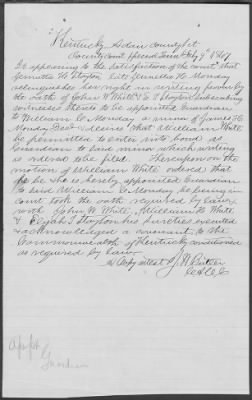 Kentucky Adair County Sct
County Court Special Term Feby 9th 1867
It appearing to the satisfaction of the court that
late Monday
relinquishes her right in writing proven by
the oath of John W White & E T Stayton subscribing
witnesses thereto to be appointed Guardian
to William C Monday, a minor of James H
Monday Decd & desires that William White
be permitted to enter into bond as
Guardian to said minor which writing
is ordered to be filed. Thereupon on the
motion of William White ordered that
he be & he is hereby appointed Guardian
to said William C Monday, he being in
court took the oath required by law &
with John W. White, William H White
& Elijah T Stayton his sureties executed
& acknowledged a covenant to the
Commonwealth of Kentucky conditioned
as required by law
A Copy attest J N
Apptt
Guardian